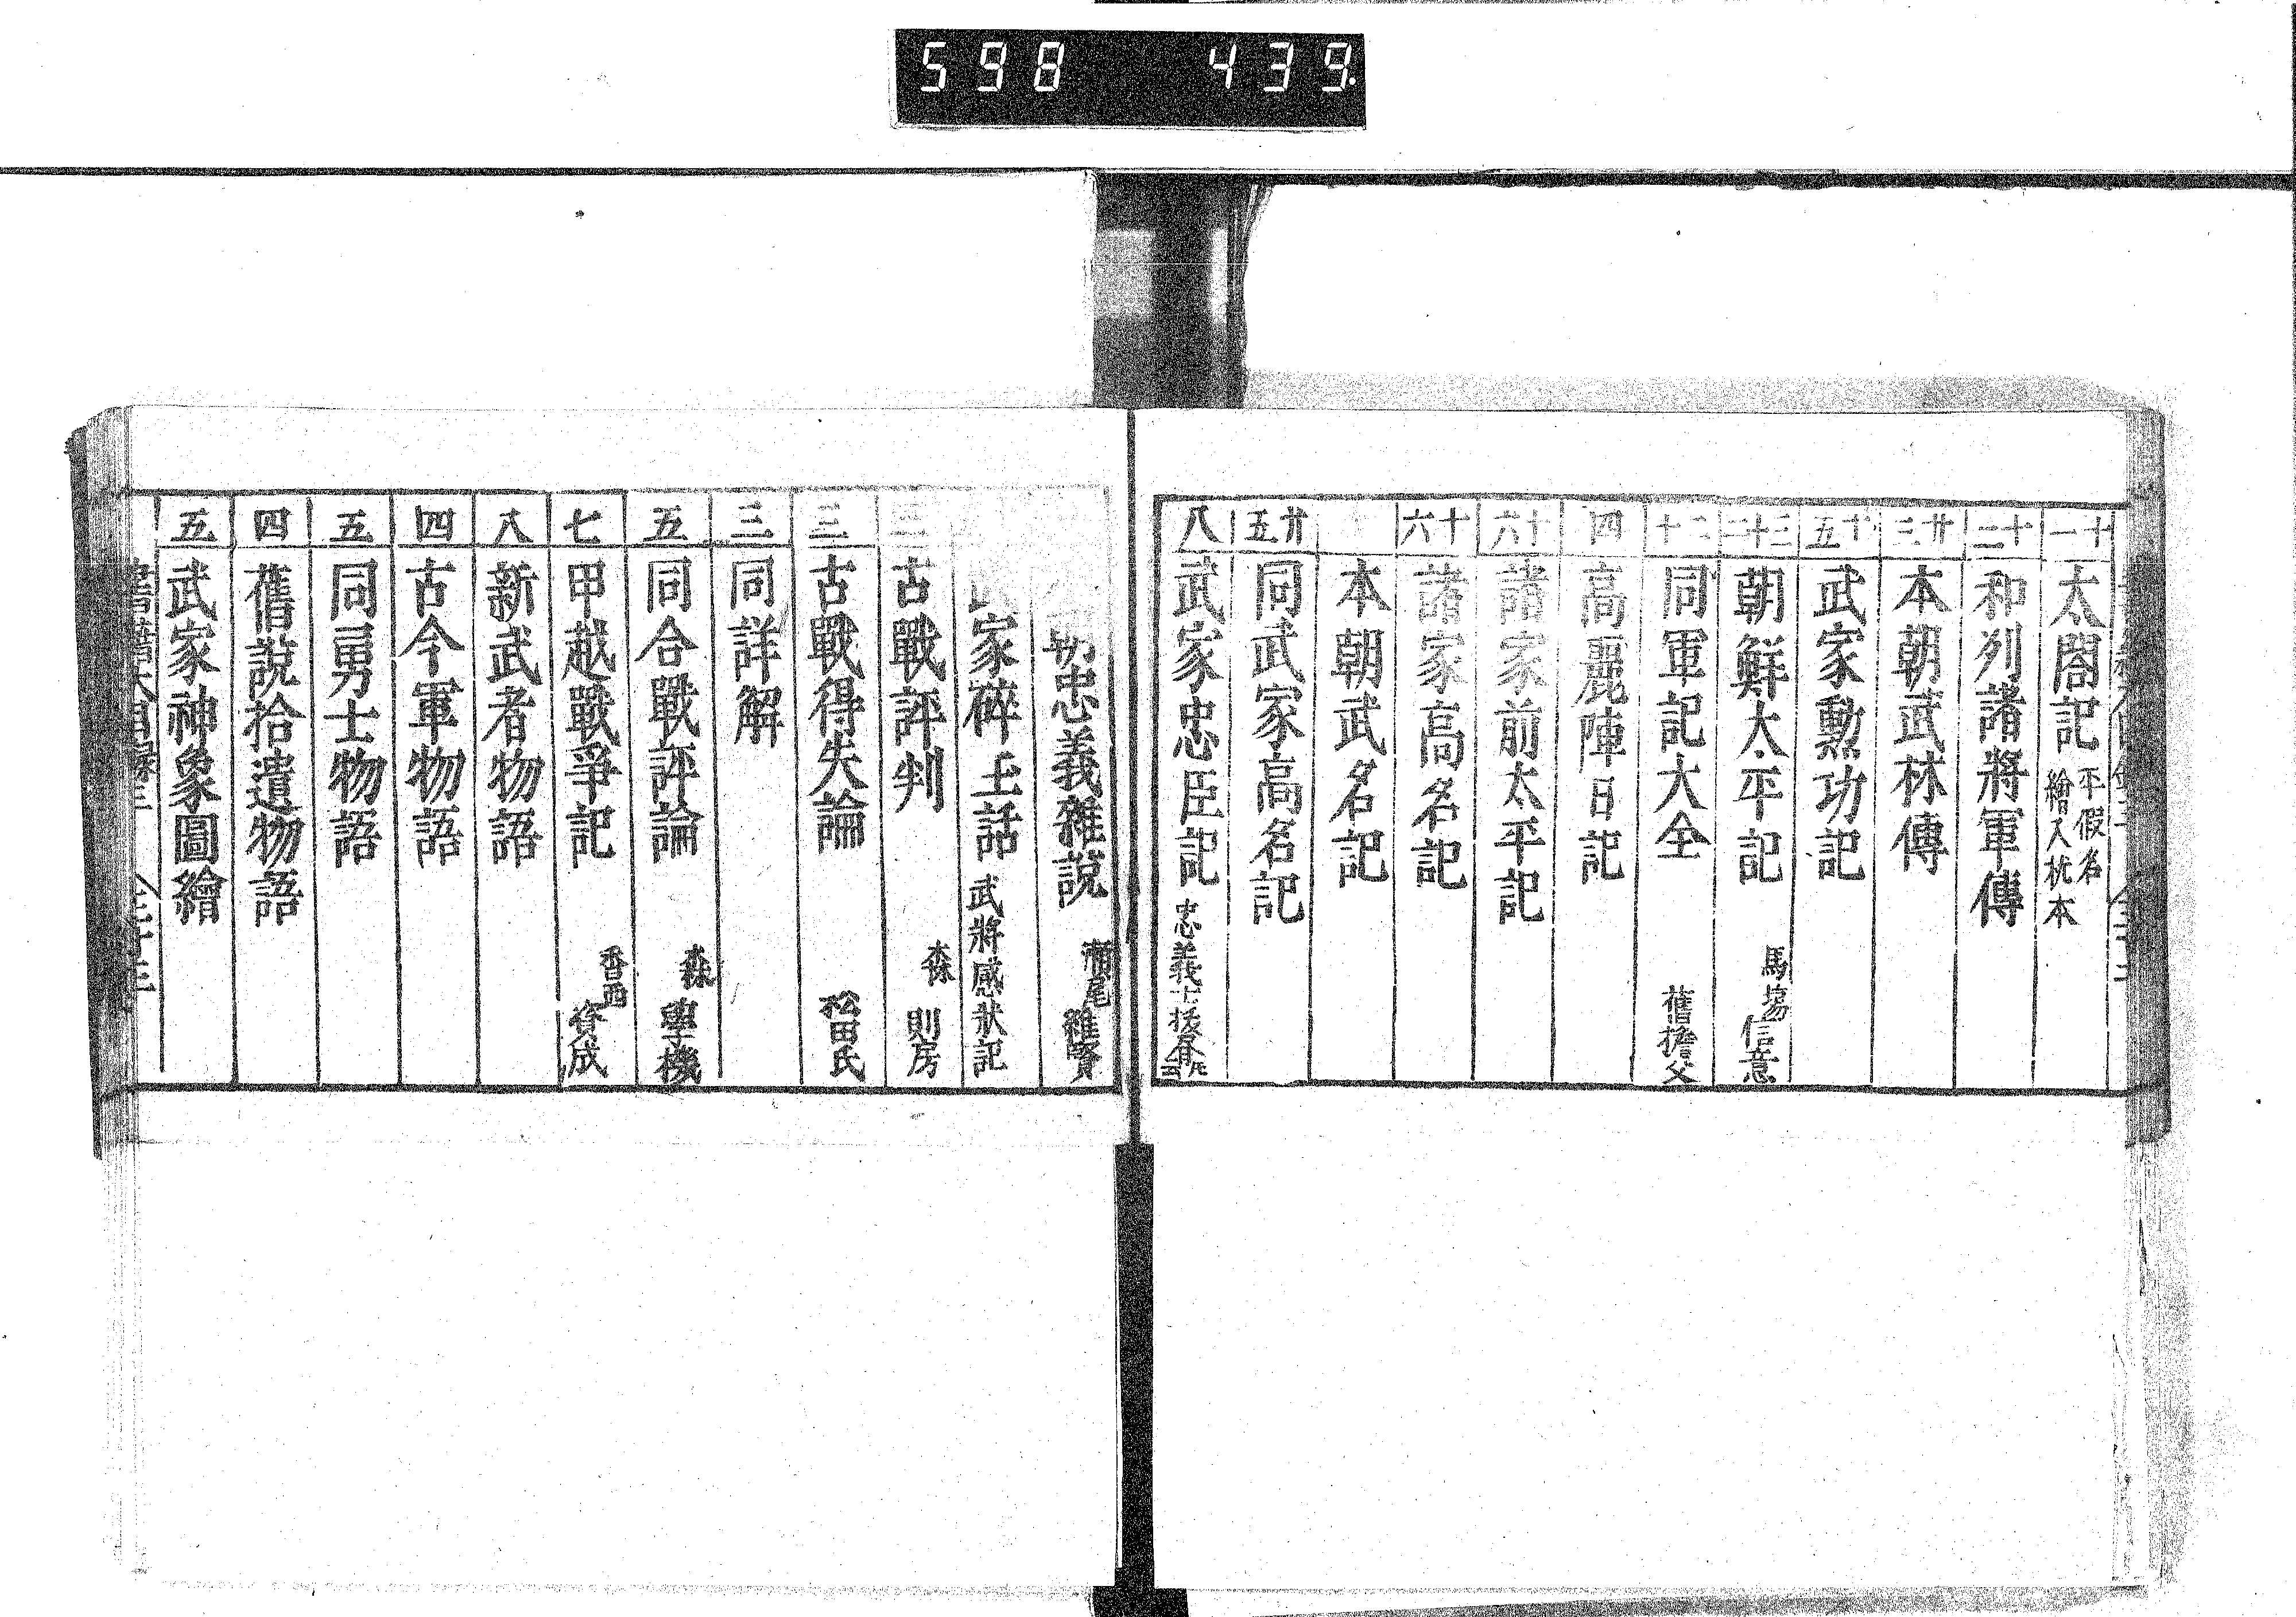 598 439
十一 太閤記 平假名 繪入枕本
十二 和列諸將軍傳
廿三 本朝武林傳
十五 武家勲功記
三十二 朝鮮太平記 馬塲信意
二十 同軍記大全 舊擔父
四 高麗陣日記
十六 諸家前太平記
十六 諸家高名記
本朝武名記
廿五 同武家高名記
八 武家忠臣記 忠義士抜
忠義雜説 瀬尾維賢
家碎玉話 武將感狀記
三 古戰評判 森則房
三 古戰得失論 松田氏
三 同詳解
五 同合戰評論 森學機
七 甲越戰爭記 香西資成
八 新武者物語
四 古今軍物語
五 同勇士物語
四 舊說拾遺物語
五 武家神象圖繪